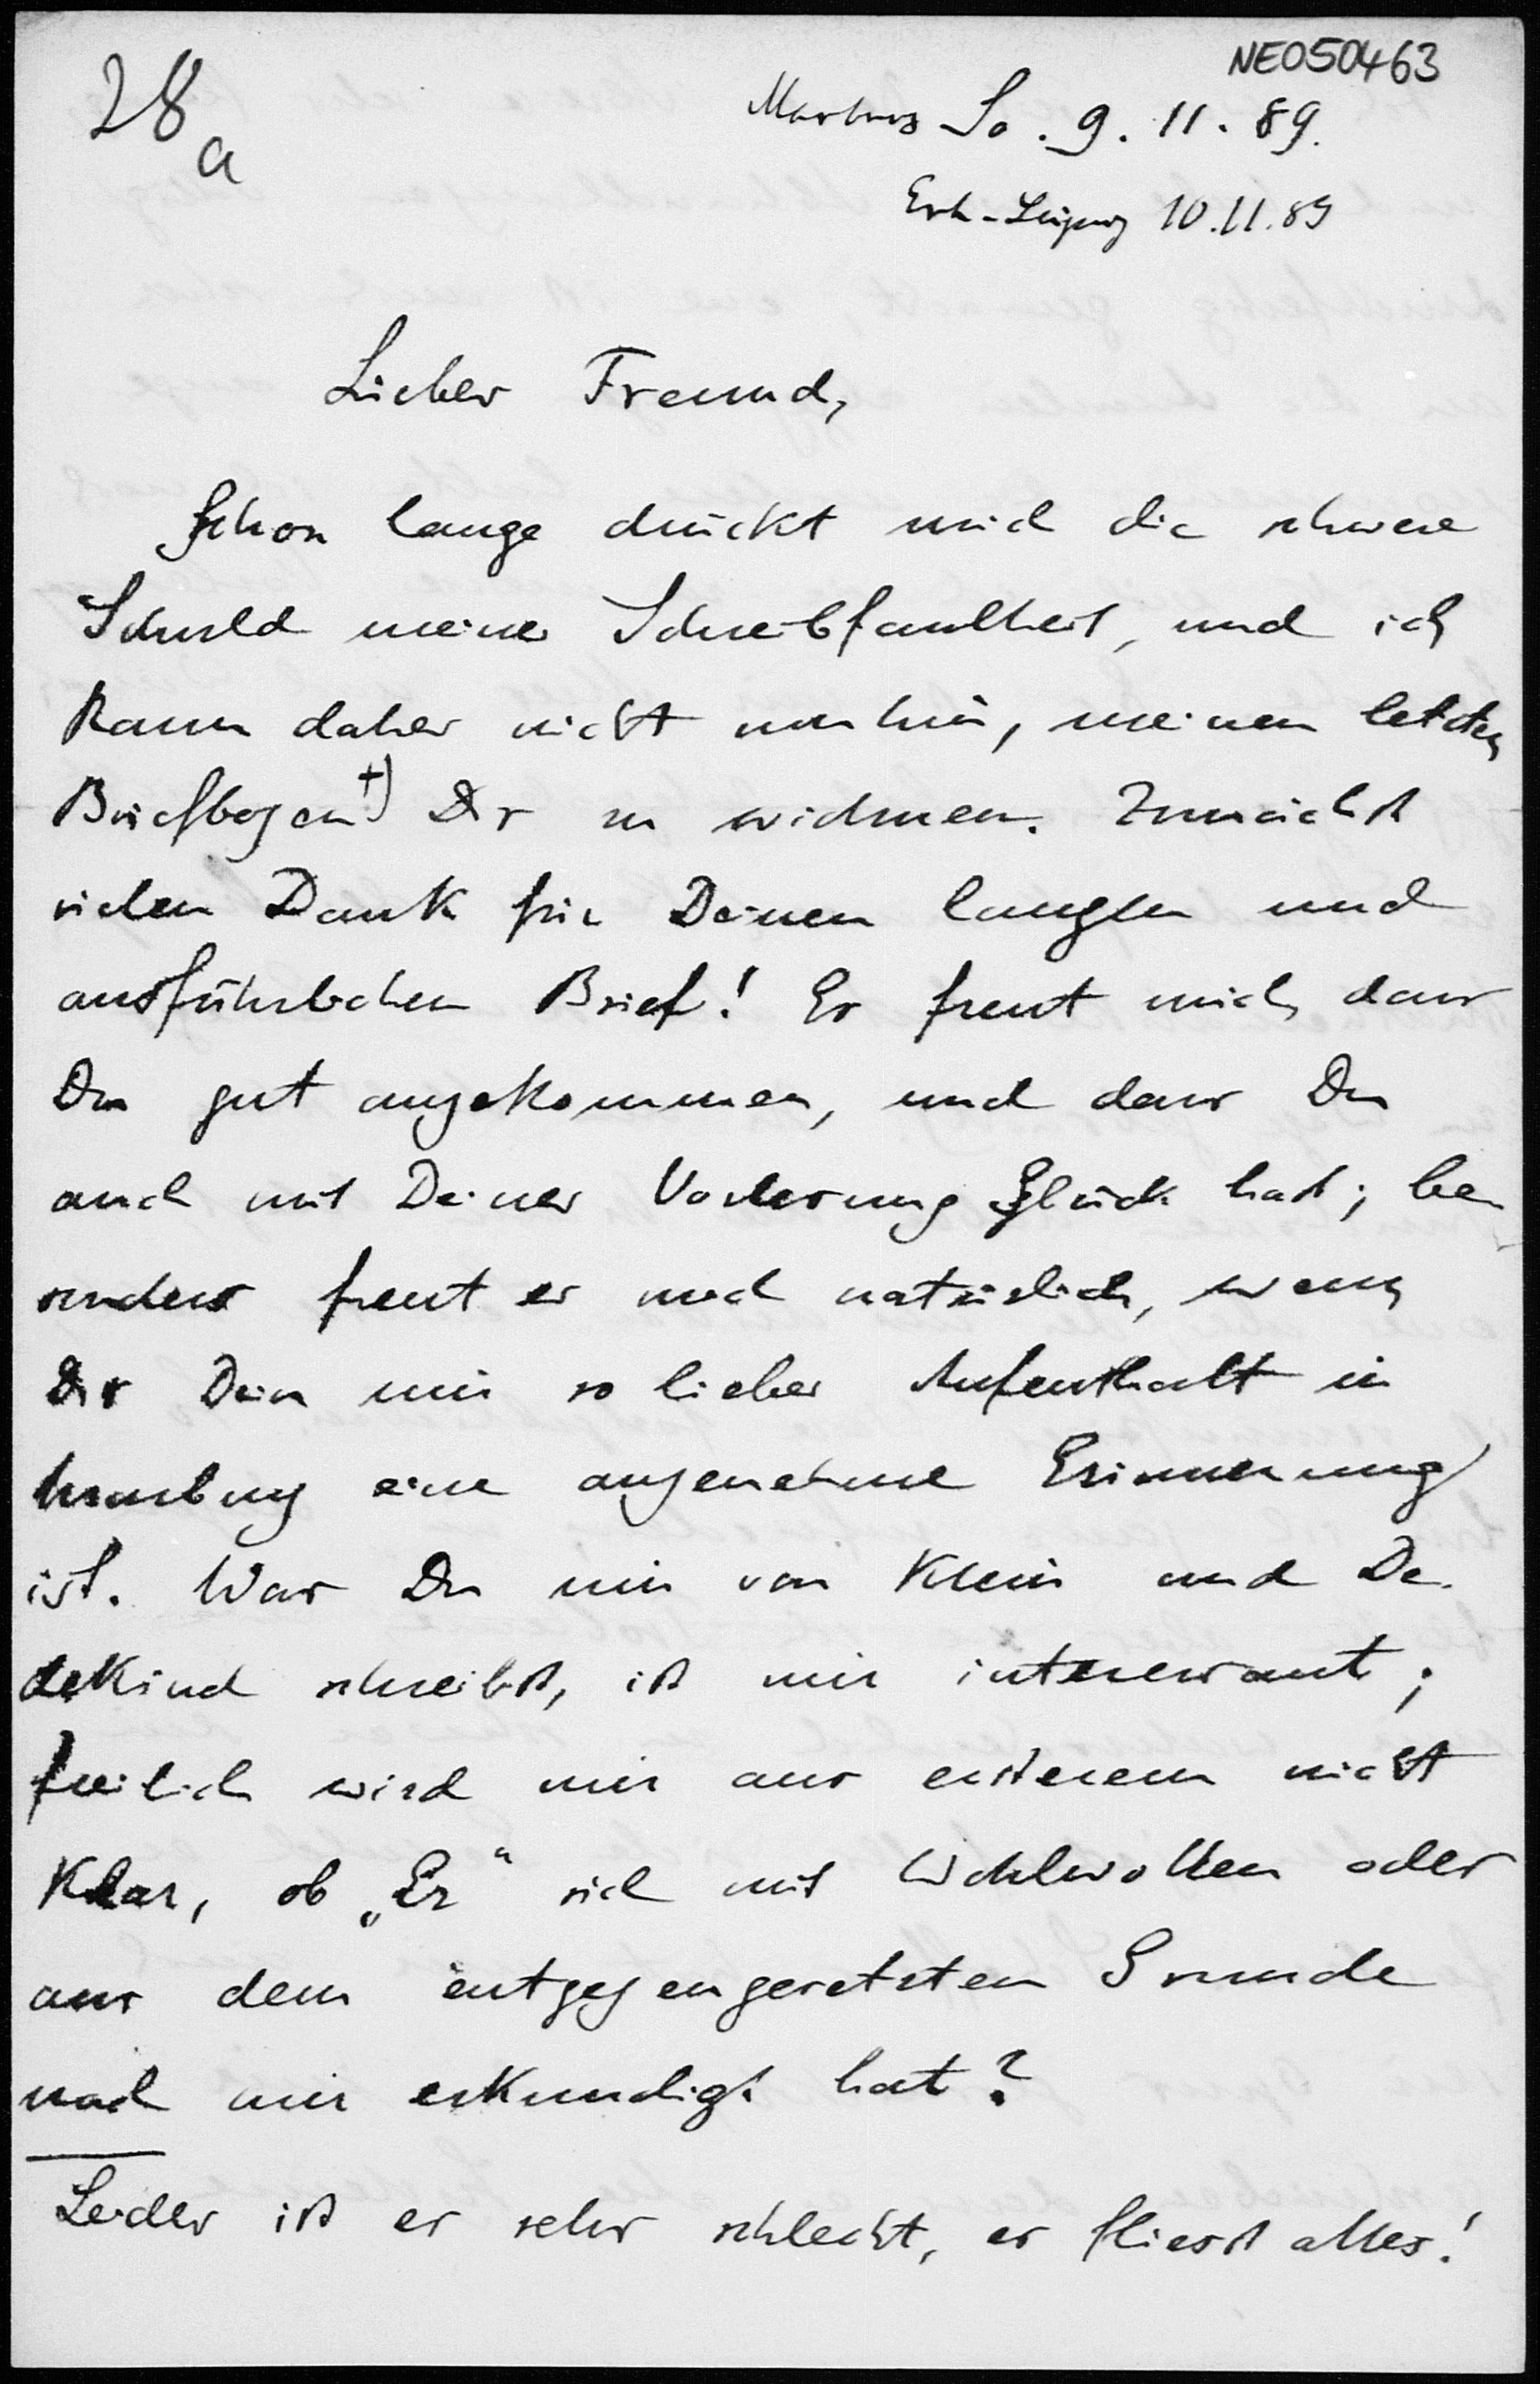 NE050463
28a
Marburg So. 9. 11. 89.
Erh. Leipzig 10.11.89
Lieber Freund,
Schon lange drückt mich die schwere
Schuld meiner Schreibfaulheit, und ich
kann daher nicht umhin, meinen letzten
Briefbogen +) Dir zu widmen. Zunächst
vielen Dank für Deinen langen und
ausführlichen Brief! Es freut mich, dass
Du gut angekommen, und dass Du
auch mit Deiner Vorlesung Glück hast; be
sonders freut es mich natürlich, wenn
Dir Dein mir so lieber Aufenthalt in
Marburg eine angenehme Erinnerung
ist. Was Du mir von Klein und De-
dekind schreibst, ist mir interessant;
freilich wird mir aus ersterem nicht
klar, ob „Er“ sich mit Wohlwollen oder
aus dem entgegengesetzten Grunde
nach mir erkundigt hat?
Leider ist er sehr schlecht, es fliesst alles!